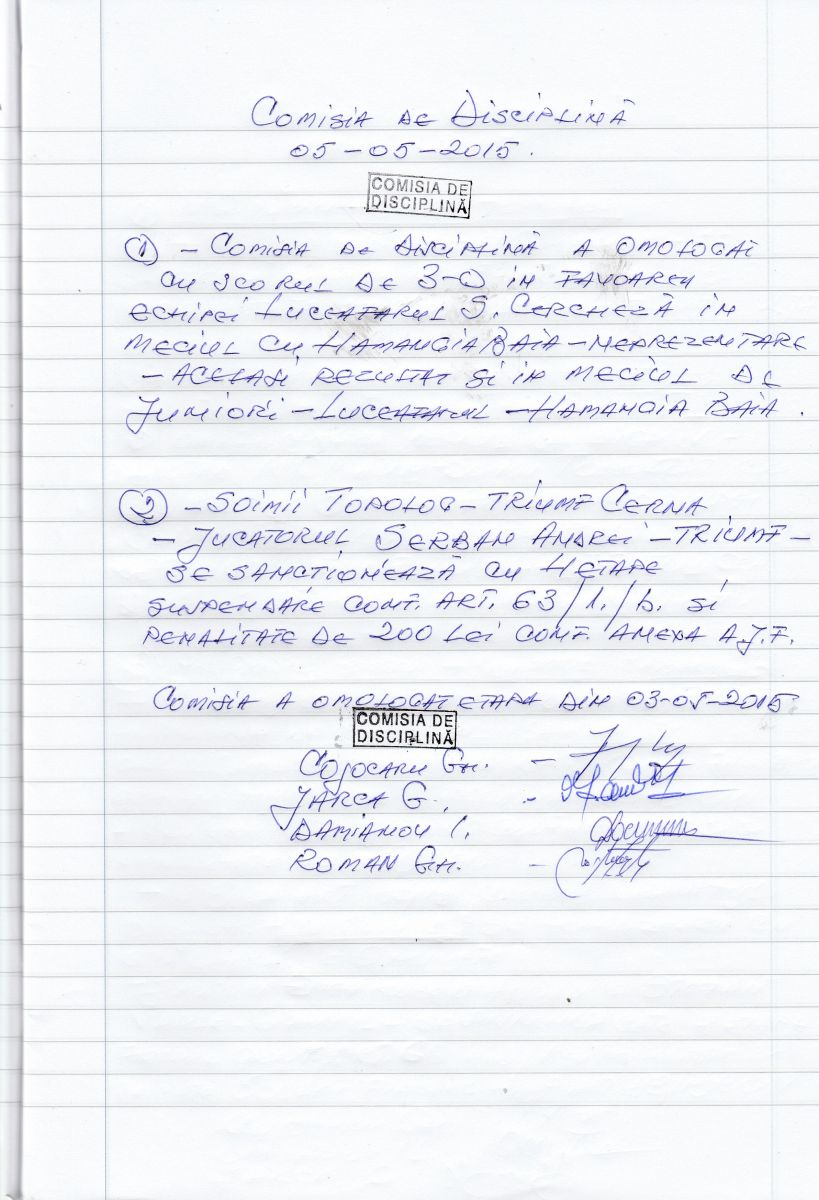 COMISIA DE DISCIPLINĂ
05-05-2015.
COMISIA DE
DISCIPLINĂ
① - COMISIA DE DISCIPLINĂ A OMOLOGAT
CU SCORUL DE 3-0 IN FAVOAREA
ECHIPEI LUCEAFARUL S. CERCHEZĂ IN
MECIUL CU HAMANGIA BAIA - NEPREZENTARE
- ACELASI REZULTAT SI IN MECIUL DE
JUNIORI - LUCEAFARUL - HAMANGIA BAIA.
② - SOIMII TOPOLOG - TRIUMF CERNA
- JUCATORUL SERBAN ANDREI - TRIUMF -
SE SANCTIONEAZĂ CU 4 ETAPE
SUSPENDARE CONF. ART. 63/1./b. SI
PENALITATE DE 200 LEI CONF. ANEXA A.J.F.
COMISIA A OMOLOGAT ETAPA DIN 03-05-2015
COMISIA DE
DISCIPLINĂ
COJOCARU GH. -
JARCA G., -
DAMIANOV I.
ROMAN GH. -